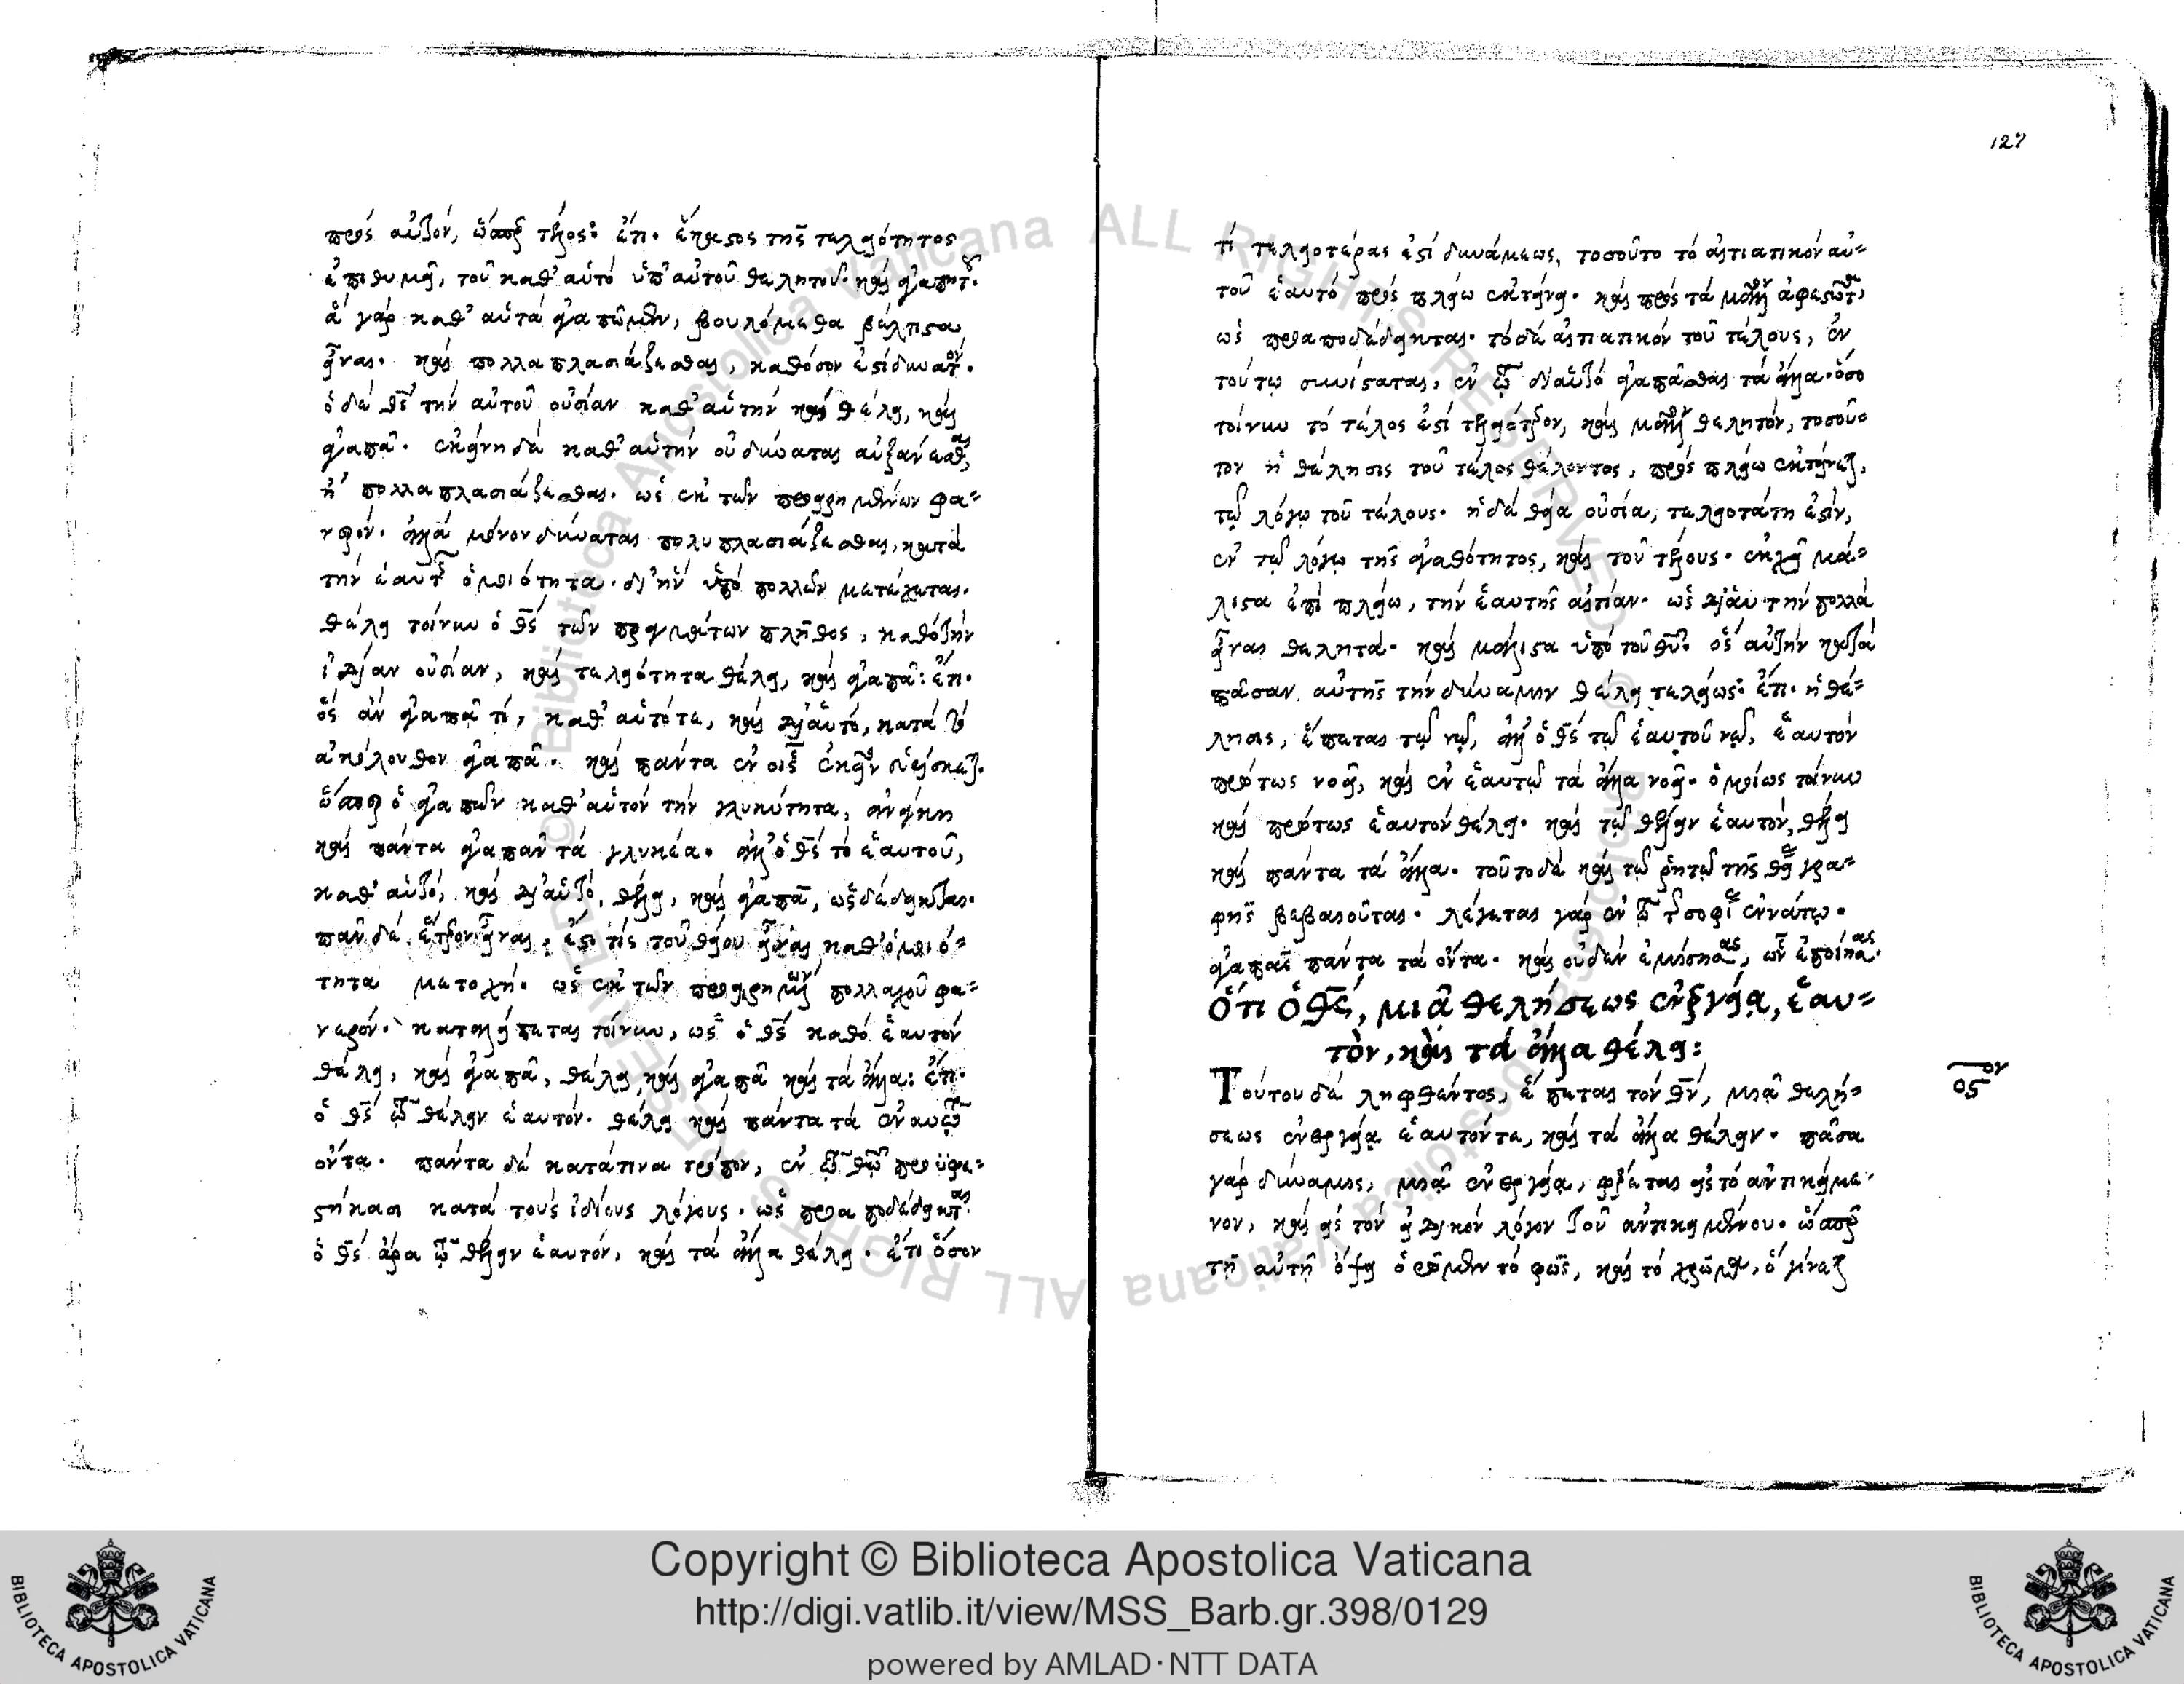 πρὸς αὐτὸν, ὥσπερ τέλος: ἔτι. ἕκαστος τῆς τελειότητος
ἐπιθυμεῖ, τοῦ καθ' αὑτὸ ὑπ' αὐτοῦ θελητοῦ. καὶ ἀγαπητοῦ.
ἃ γὰρ καθ' αὑτὰ ἀγαπῶμεν, βουλόμεθα βέλτιστα
εἶναι. καὶ πολλαπλασιάζεσθαι, καθόσον ἐστὶ δυνατόν.
ὁ δὲ θς τὴν αὐτοῦ οὐσίαν καθ' αὑτὴν καὶ θέλει, καὶ
ἀγαπᾷ. ἐκείνη δὲ καθ' αὑτὴν οὐ δύναται αὐξάνεσθαι,
ἢ πολλαπλασιάζεσθαι. ὡς ἐκ τῶν προειρημένων φα-
νερόν. ἀλλὰ μόνον δύναται πολυπλασιάζεσθαι, κατὰ
τὴν ἑαυτῆς ὁμοιότητα. δι' ἣν ὑπὸ πολλῶν μετέχεται.
θέλει τοίνυν ὁ θς τῶν πραγμάτων πλῆθος, καθὸ τὴν
ἰδίαν οὐσίαν, καὶ τελειότητα θέλει, καὶ ἀγαπᾷ: ἔτι.
ὃς ἂν ἀγαπᾷ τὶ, καθ' αὑτό τε, καὶ δι' αὑτό, κατὰ τὸ
ἀκόλουθον ἀγαπᾷ. καὶ πάντα ἐν οἷς ἐκεῖνο εὑρίσκεται.
ὥσπερ ὁ ἀγαπῶν καθ' αὑτὸν τὴν γλυκύτητα, ἀνάγκη
καὶ πάντα ἀγαπᾶν τὰ γλυκέα. ἀλλ' ὁ θς τὸ ἑαυτοῦ,
καθ' αὑτό, καὶ δι' αὑτό, θέλει, καὶ ἀγαπᾷ, ὡς δέδεικται.
πᾶν δὲ ἕτερον εἶναι, ἐστί τις τοῦ θείου εἶναι καθ' ὁμοιό-
τητα μετοχή. ὡς ἐκ τῶν προειρημένων πολλαχοῦ φα-
νερόν. καταλείπεται τοίνυν, ὡς ὁ θς καθὸ ἑαυτὸν
θέλει, καὶ ἀγαπᾷ, θέλει καὶ ἀγαπᾷ καὶ τὰ ἄλλα: ἔτι.
ὁ θς τῷ θέλειν ἑαυτόν. θέλει καὶ πάντα τὰ ἐν αυτῷ
ὄντα. πάντα δὲ κατά τινα τρόπον, ἐν τῷ θῷ προϋφε-
στήκασι κατὰ τοὺς ἰδίους λόγους. ὡς προαποδέδεικται.
ὁ θς ἄρα τῷ θέλειν ἑαυτόν, καὶ τὰ ἄλλα θέλει. ἔτι ὅσον
127
τὶ τελειοτέρας ἐστὶ δυνάμεως, τοσοῦτο τὸ αἰτιατικὸν αὐ-
τοῦ ἑαυτὸ πρὸς πλείω ἐκτείνει. καὶ πρὸς τὰ μᾶλλον ἀφεστῶτα,
ὡς προαποδέδεικται. τὸ δὲ αἰτιατικὸν τοῦ τέλους, ἐν
τούτῳ συνίσταται, ἐν τῷ δι' αὐτὸ ἀγαπᾶσθαι τὰ ἄλλα. ὅσο
τοίνυν τὸ τέλος ἐστὶ τελειότερον, καὶ μᾶλλον θελητόν, τοσοῦ-
τον ἡ θέλησις τοῦ τέλος θέλοντος, πρὸς πλείω ἐκτείνεται,
τῷ λόγῳ τοῦ τέλους. ἡ δὲ θεία οὐσία, τελειοτάτη ἐστίν,
ἐν τῷ λόγῳ τῆς ἀγαθότητος, καὶ τοῦ τέλους. ἐκχεῖ μά-
λιστα ἐπὶ πλείω, τὴν ἑαυτῆς αἰτίαν. ὡς δι' αὐτὴν πολλὰ
εἶναι θελητά. καὶ μάλιστα ὑπὸ τοῦ θῦ. ὃς αὐτὴν κατὰ
πᾶσαν αὐτῆς τὴν δύναμιν θέλει τελείως: ἔτι. ἡ θέ-
λησις, ἕπεται τῷ νῷ, ἀλλ' ὁ θς τῷ ἑαυτοῦ νῷ, ἑαυτὸν
πρώτως νοεῖ, καὶ ἐν ἑαυτῷ τὰ ἄλλα νοεῖ. ὁμοίως τοίνυν
καὶ πρώτως ἑαυτὸν θέλει. καὶ τῷ θέλειν ἑαυτόν, θέλει
καὶ πάντα τὰ ἄλλα. τοῦτο δὲ καὶ τῷ ῥητῷ τῆς θείας γρα-
φῆς βεβαιοῦται. λέγεται γὰρ ἐν τῷ τῆς σοφίας ἑνδεκάτῳ.
ἀγαπᾷς πάντα τὰ ὄντα. καὶ οὐδὲν ἐμίσησας, ὧν ἐποίησας.
Ὅτι ὁ θς, μιᾷ θελήσεως ἐνεργείᾳ, ἑαυ-
τὸν, καὶ τὰ ἄλλα θέλει:
Τούτου δὲ ληφθέντος, ἕπεται τὸν θν, μιᾷ θελή-
σεως ἐνεργείᾳ ἑαυτόν τε, καὶ τὰ ἄλλα θέλειν. πᾶσα
γὰρ δύναμις, μιᾷ ἐνεργείᾳ, φέρεται εἰς τὸ ἀντικείμε-
νον, καὶ εἰς τὸν εἰδικὸν λόγον τοῦ ἀντικειμένου. ὥσπερ
τῇ αὐτῇ ὄψει ὁρῶμεν τὸ φῶς, καὶ τὸ χρῶμα, ὃ γίνεται
ος ον
Copyright © Biblioteca Apostolica Vaticana
http://digi.vatlib.it/view/MSS_Barb.gr.398/0129
powered by AMLAD·NTT DATA